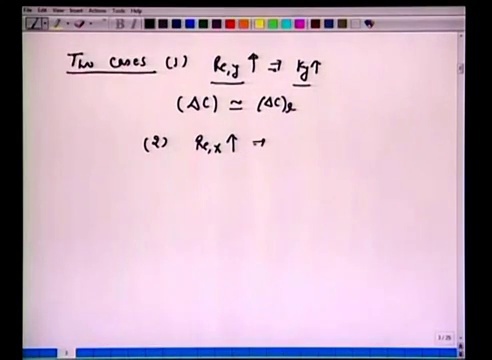 File Edit View Insert Actions Tools Help
Two cases (1) Re,y ↑ ⇒ Ky↑
(ΔC) ≃ (ΔC)2
(2) Re,x ↑ ⇒